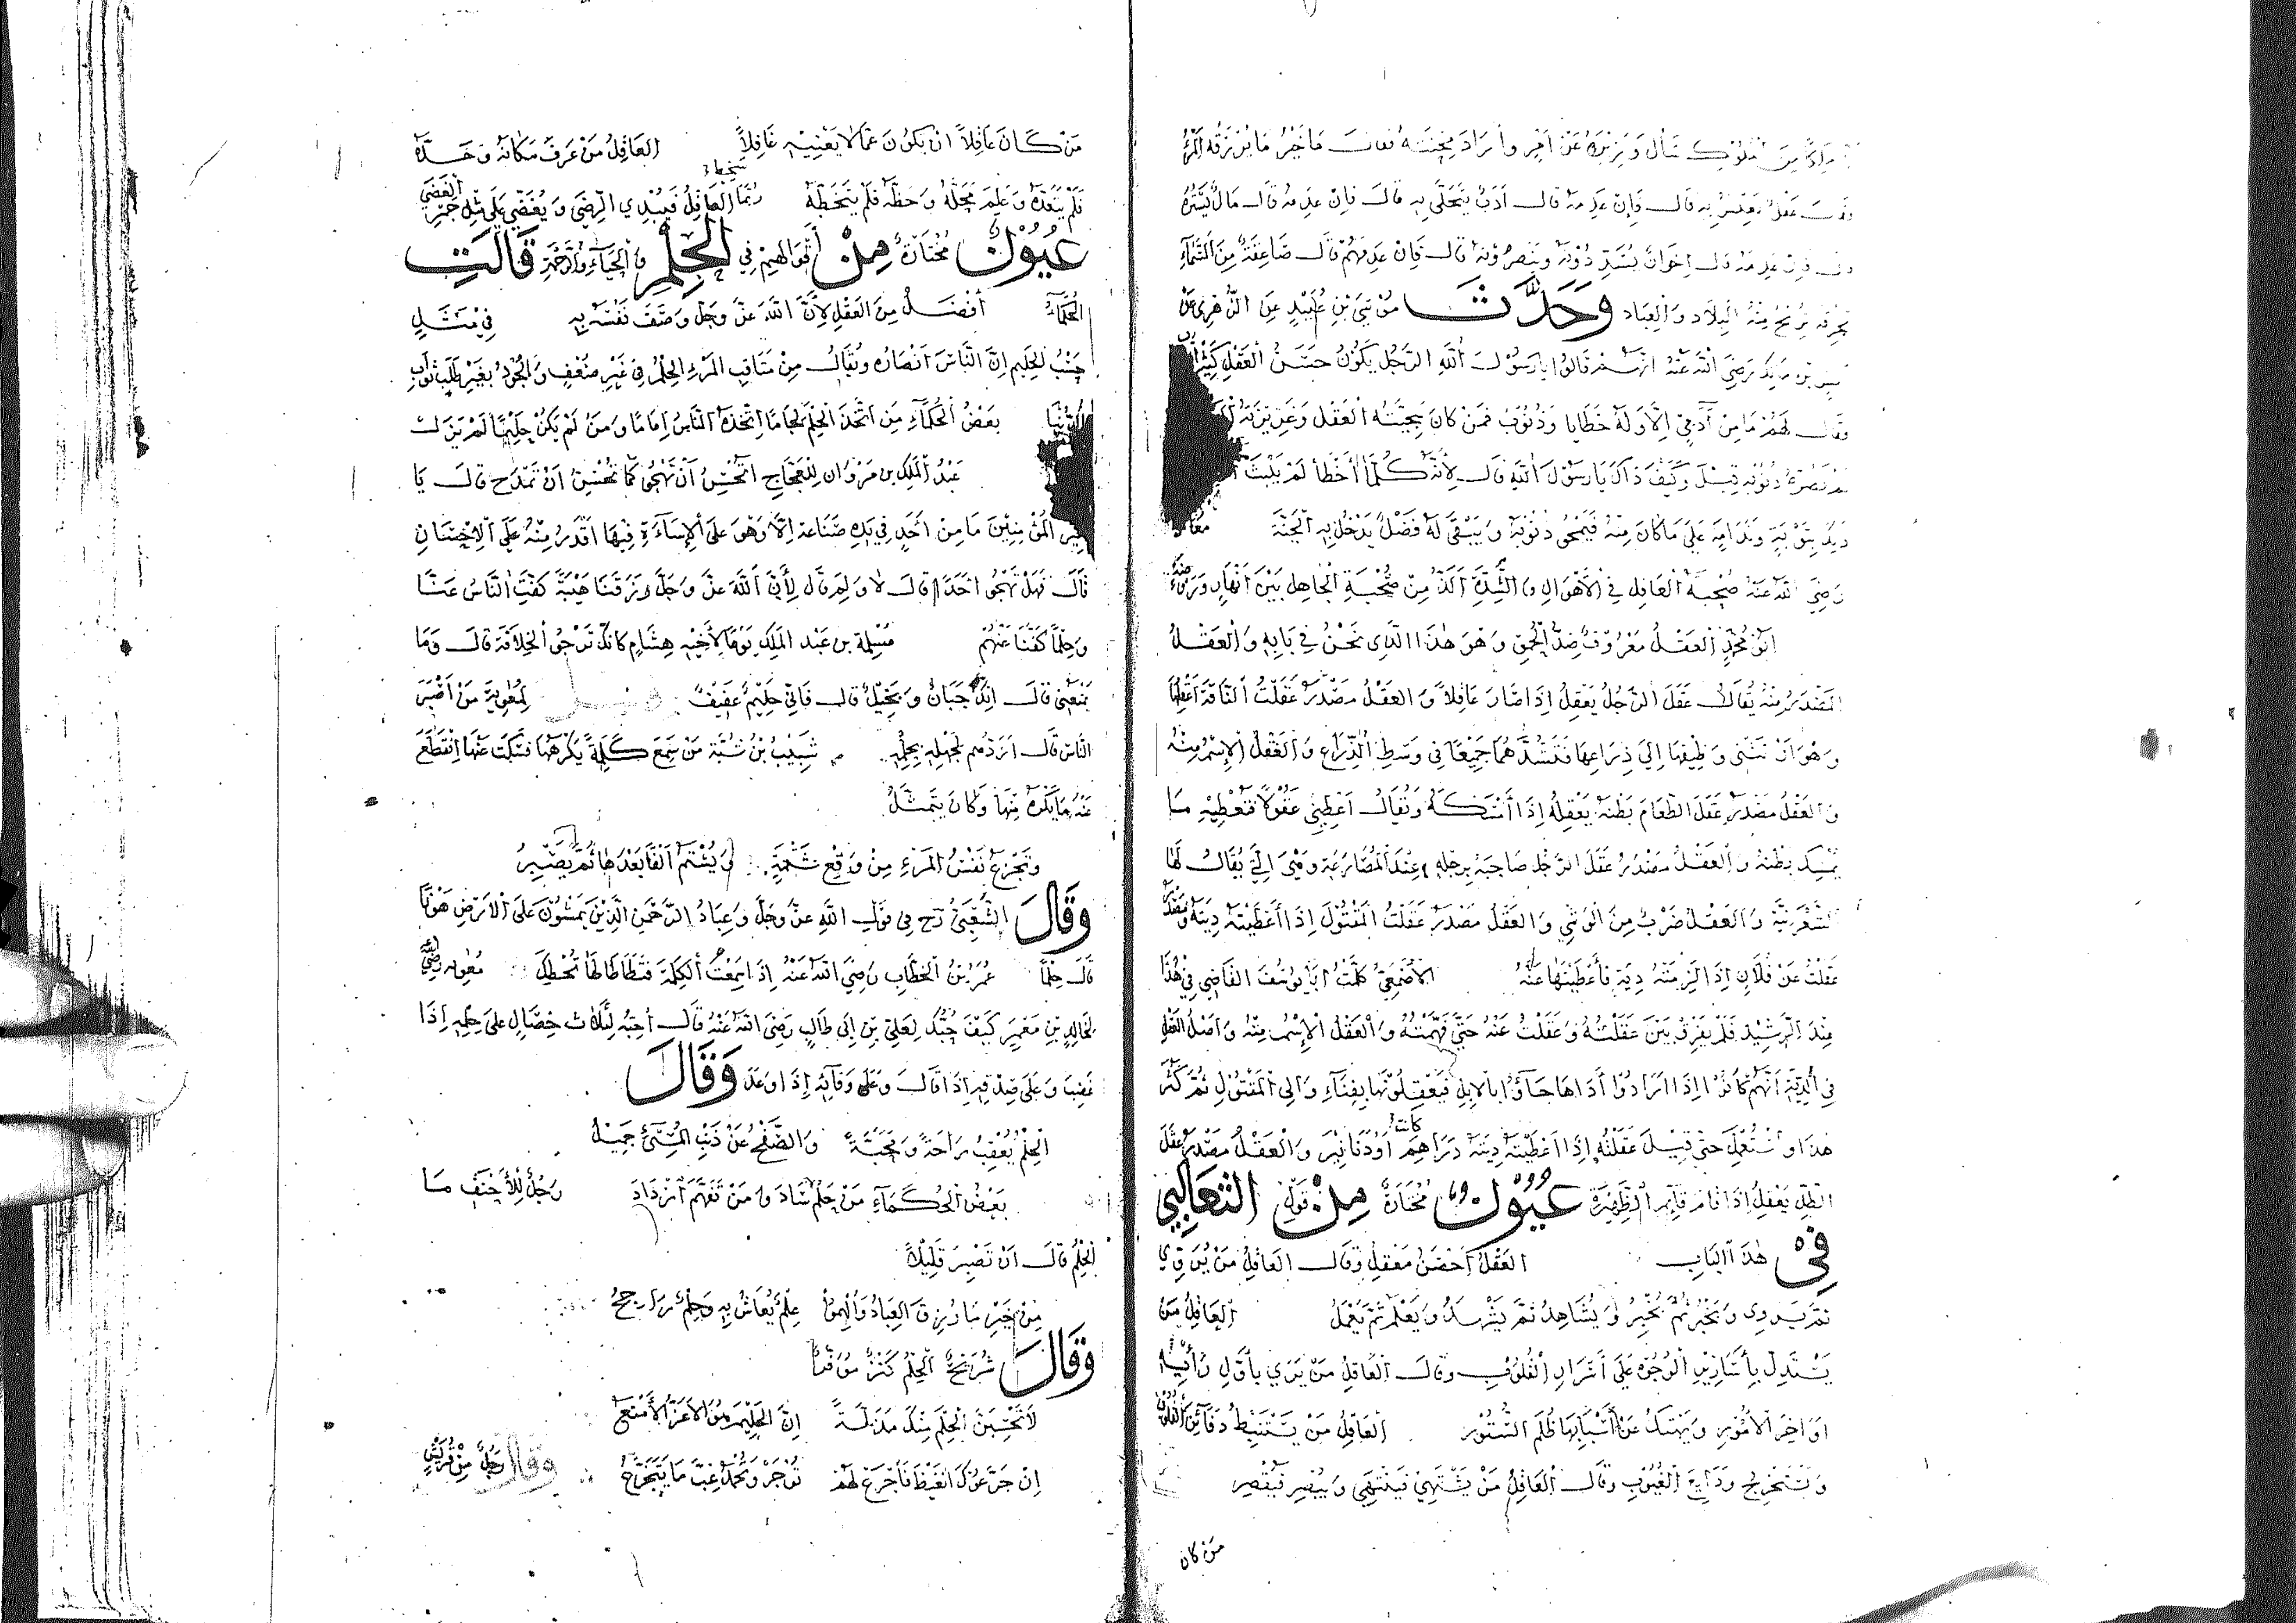 ملكًا من الملوك سأل وزيره عن أمر وأراد محنته فقال ما خير ما يرزقه المرء
فقال عقل يعيش به قال فإن عدمه قال أدب يتحلى به قال فإن عدمه قال مال يستره
قال فإن عدمه قال إخوان يسترونه وينصرونه قال فإن عدمهم قال صاعقة من السماء
تحرقه تريح منه البلاد والعباد وحدّث بن عبيد عن الزهري عن
أنس بن مالك رضي الله عنه أنهم قالوا يا رسول الله الرجل يكون حسن العقل كثير
فقال لهم ما من آدمي إلا وله خطايا وذنوب فمن كان سجيته العقل وغريزته
لم تضره ذنوبه قيل وكيف ذاك يا رسول الله قال لأنه كلما أخطأ لم يلبث
بتوبة وندامة على ما كان منه فيمحو ذنوبه ويبقى له فضل يدخل به الجنة معاوية
رضي الله عنه صحبة العاقل في الأهوال والشدة ألذ من صحبة الجاهل بين أنهار وروضة
العقل معروف ضد الحمق وهو هذا الذي نحن في بابه والعقل
المصدر منه يقال عقل الرجل يعقل إذا صار عاقلاً والعقل مصدر عقلت الناقة أعقلها
وهو أن تثني وظيفها إلى ذراعها فتشدهما جميعًا في وسط الذراع والعقل الاسم منه
والعقل مصدر عقل الطعام بطنه يعقله إذا أمسكه ويقال أعطني عقولاً فتعطيه ما
يمسك بطنه والعقل مصدر عقل الرجل صاحبه برجله عند المصارعة وهي التي يقال لها
الشغزبية والعقل ضرب من الوشي والعقل مصدر عقلت المقتول إذا أعطيته ديته ومصدر
عقلت عن فلان إذا لزمته دية فأعطيتها عنه الأصمعي كلمت أبا يوسف القاضي في هذا
عند الرشيد فلم يفرق بين عقلته وعقلت عنه حتى فهمته والعقل الاسم منه وأصل العقل
في الدية أنهم كانوا إذا أرادوا أداها جاؤا بالإبل فيعقلونها بفناء والي المقتول ثم كثر
هذا واستعمل حتى قيل عقلته إذا أعطيته ديته دراهم كانت أو دنانير والعقل مصدر عقل
الظل يعقل إذا قام قائم الظهيرة عيون مختارة من قول الثعالبي
في هذا الباب العقل أحصن معقل وقال العاقل من يروّي
ثم يروي ويخبر ثم يخبر ويشاهد ثم يشهد ويعلم ثم يعمل العاقل من
يستدل بأسارير الوجوه على أسرار القلوب وقال العاقل من يرى بأول رأيه
أواخر الأمور ويهتك عن أسبابها ظلم الستور العاقل من يستنبط دفائن القلوب
ويستخرج ودائع الغيوب وقال العاقل من يشتهي فينتهي ويبصر فيقصر
من كان
من كان عاقلاً أن يكون عما لا يعنيه غافلاً العاقل من عرف مكانه وحده
فلم يتعده وعلم محله وحظه فلم يتخطه ربما العاقل فيبدي الرضى ويغضي على مثل جمر الغضى
عيون مختارة من أقوالهم في الحلم والحياء والرحمة قالت
الحكماء أفضل من العقل لأن الله عز وجل وصف نفسه به في مثل
حسب الحليم إن الناس أنصاره ويقال من مناقب المرء الحلم في غير ضعف والجود بغير طلب ثواب
الدنيا بعض الحكماء من اتخذ الحلم لجامًا اتخذه الناس إمامًا ومن لم يكن حليمًا لم يزل
عبد الملك بن مروان للعجاج أتحسن أن تهجو كما تحسن أن تمدح قال يا
أمير المؤمنين ما من أحد في يده صناعة إلا وهو على الإساءة فيها أقدر منه على الإحسان
قال فهل تهجو أحدًا قال لا ولم قال لأن الله عز وجل رزقنا هيبة كفّت الناس عنا
وحلمًا كفنا عنهم مسلمة بن عبد الملك يومًا لأخيه هشام كانك ترجو الخلافة قال وما
يمنعني قال إنك جبان وبخيل قال فإني حليم عفيف لمعوية من أصبر
الناس قال أردهم لجهله بحلمه شبيب بن شبة من سمع كلمة يكرهها فسكت عنها انقطع
عنه ما يكره منها وكان يتمثل
وتجزع نفس المرء من وقع شتمة ويشتم ألفا بعدها ثم يصبر
وقال الشعبي رح في قول الله عز وجل وعباد الرحمن الذين يمشون على الأرض هونًا
قال حلمًا عمر بن الخطاب رضي الله عنه إذا سمعت الكلمة فتطاطا لها تخطك معوية رضي الله
لخالد بن معمر كيف حبك لعلي بن أبي طالب رضي الله عنه قال أحبه لثلاث خصال على حلمه إذا
غضب وعلى صدقه إذا قال وعلى وفائه إذا وعد وقال
الحلم يعقب راحة ومحبة والصفح عن ذنب المسيء جميل
بعض الحكماء من حلم ساد ومن تفهم ازداد رجل للأحنف ما
الحلم قال أن تصبر قليلاً
من خير ما رزق العباد علم يعاش به وحلم راجح
وقال شريح الحلم كنز موفر
لا تحسبن الحلم منك مذلة إن الحليم هو الأعز الأمنع
إن جرعوك الغيظ فاجرع لهم توجر وتحمد غب ما يتجرع وقال رجل من قريش